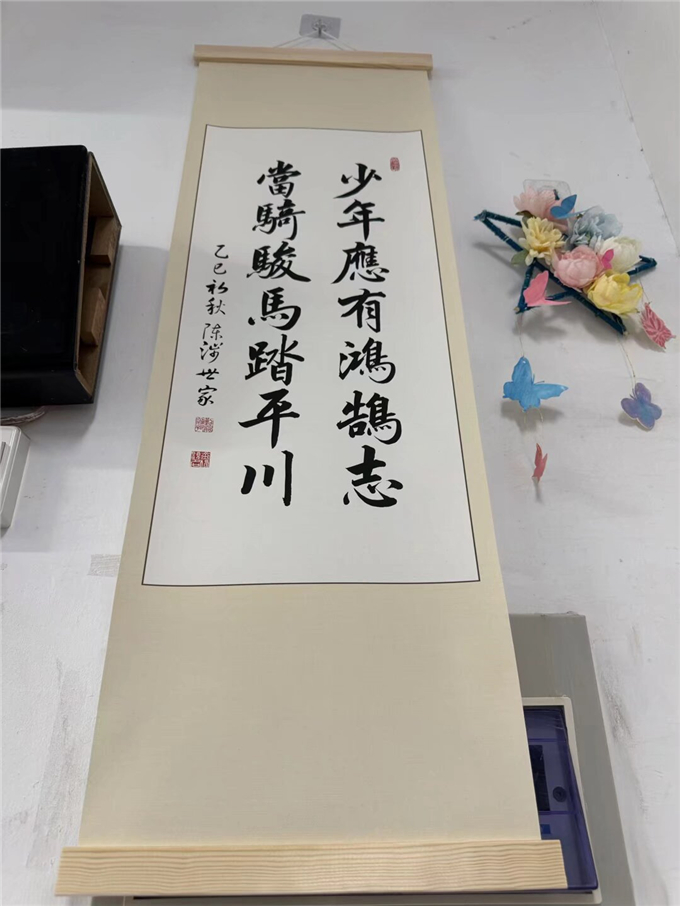 少年應有鴻鵠志
當騎駿馬踏平川
乙巳初秋 陈涛世家